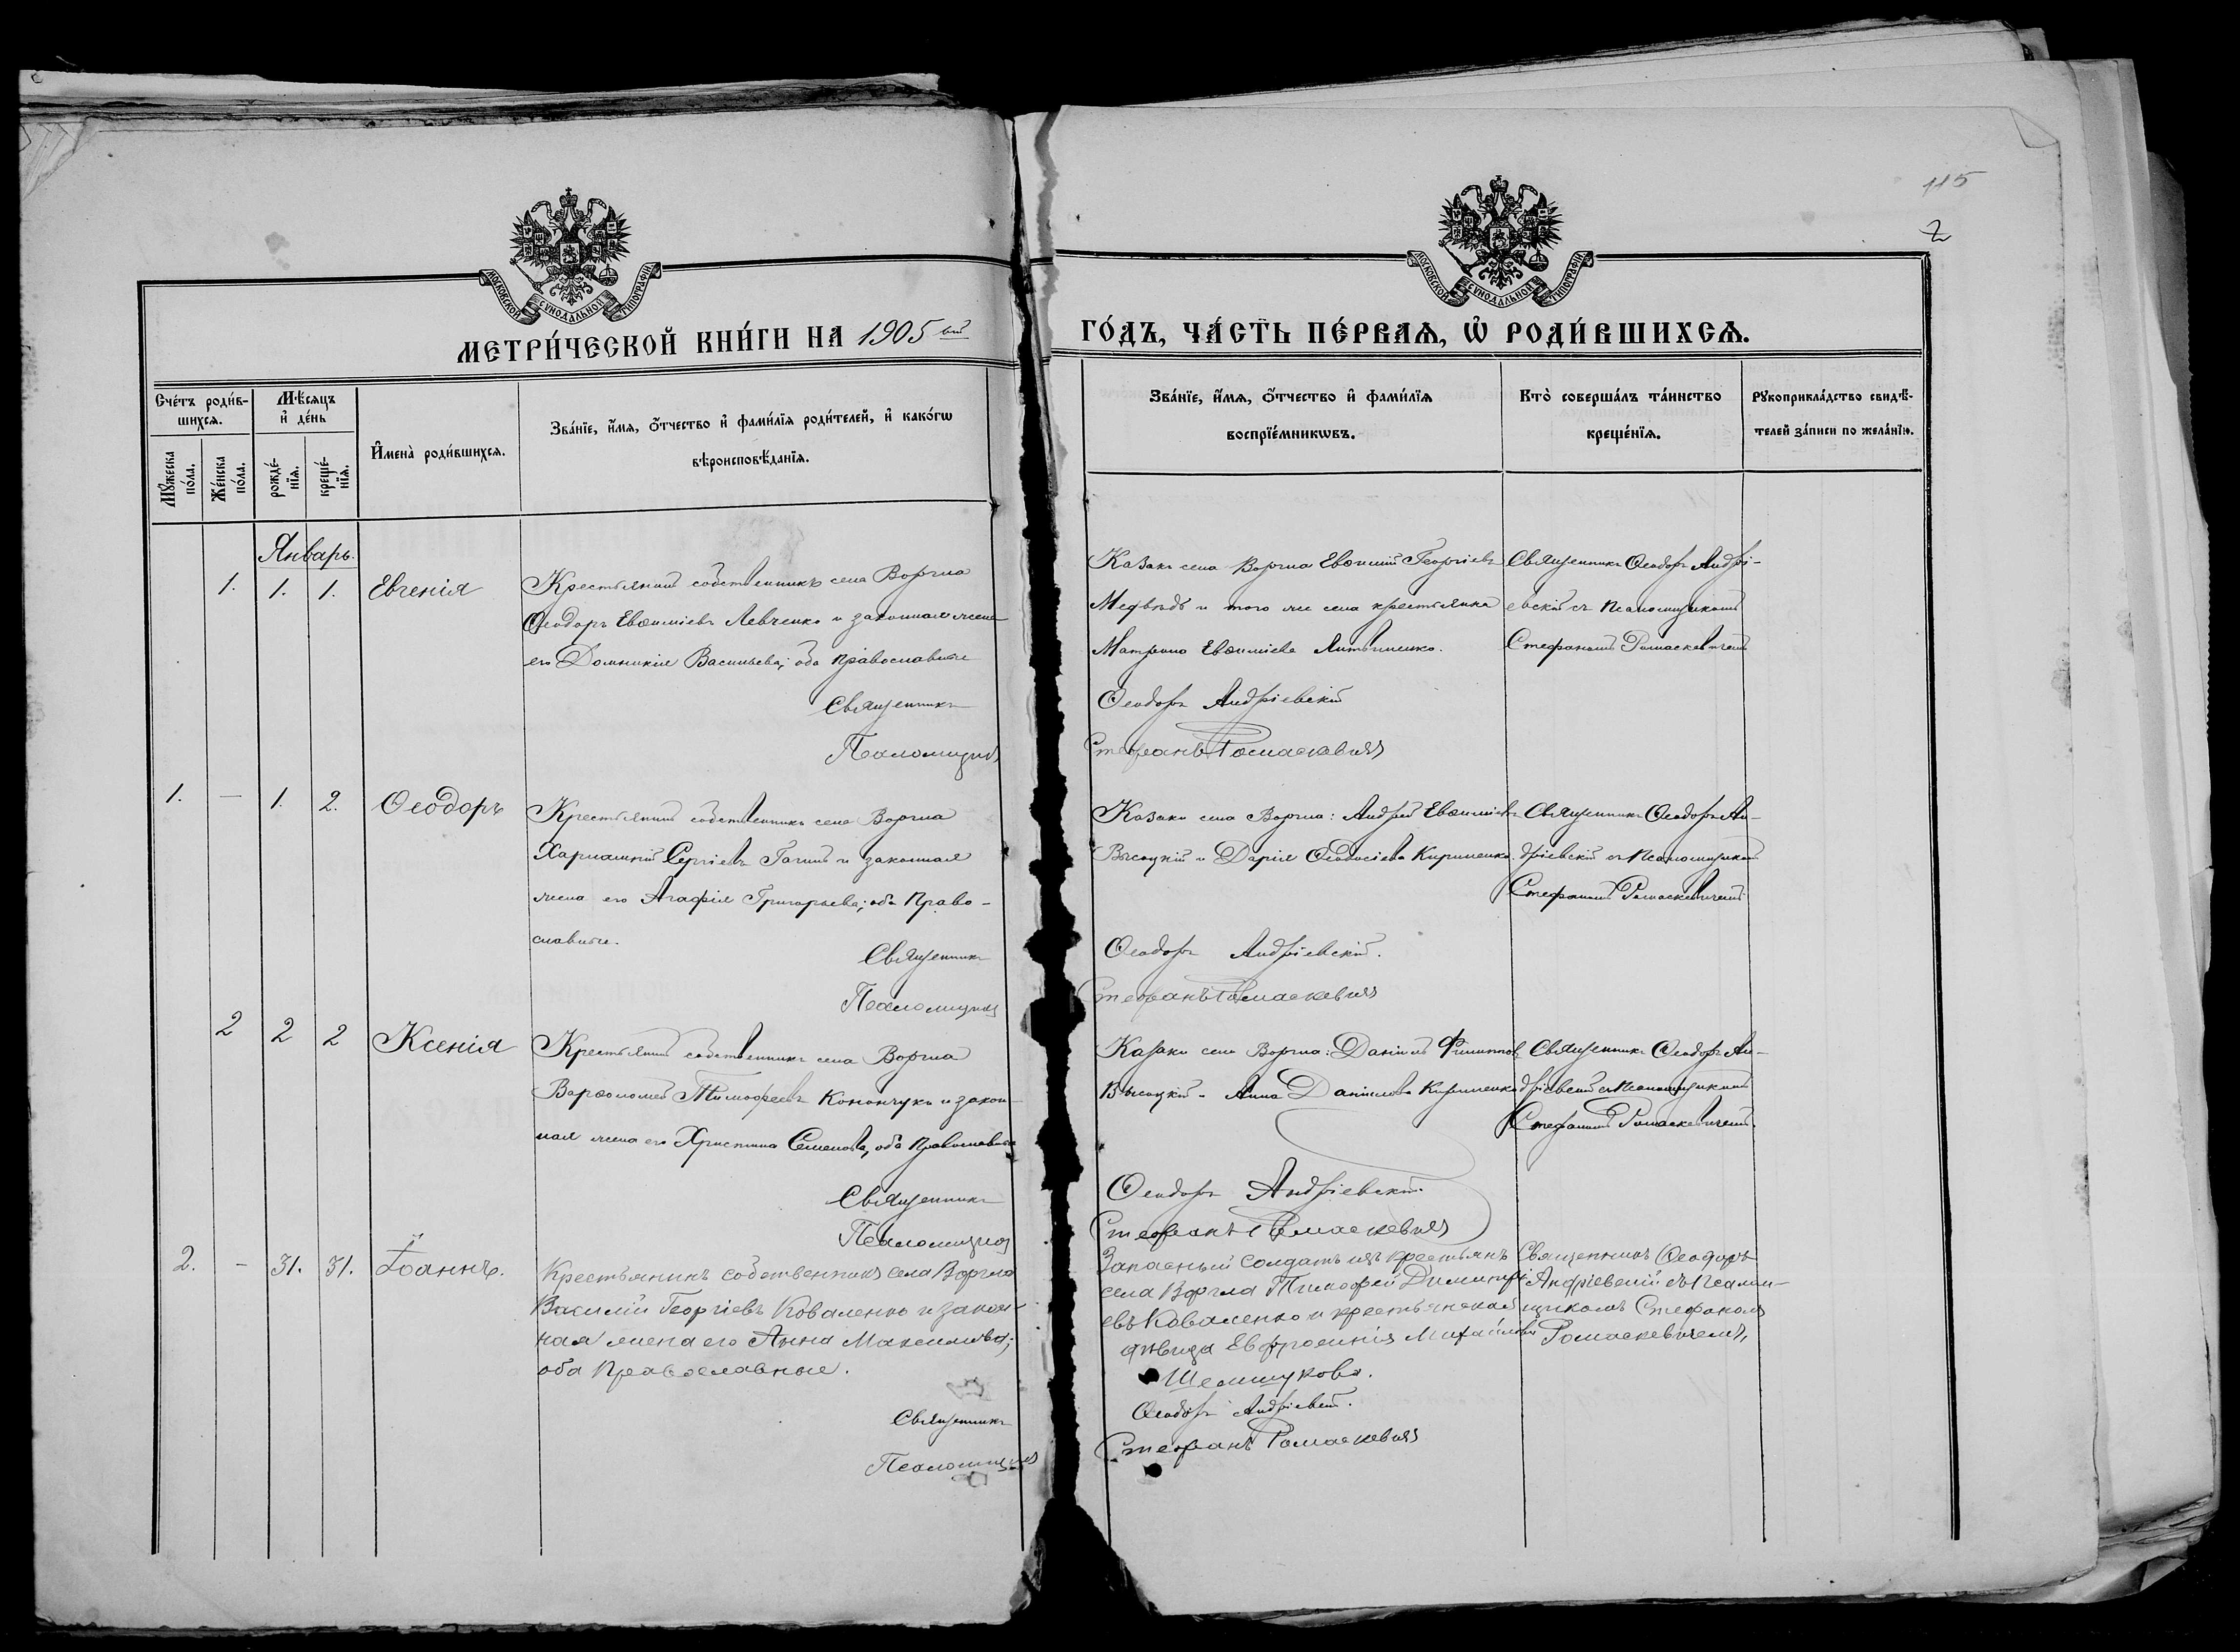 115
2
МОСКОВСКОЙ СѴНОДАЛЬНОЙ ТИПОГРАФІИ
МОСКОВСКОЙ СѴНОДАЛЬНОЙ ТИПОГРАФІИ
МЕТРИ́ЧЕСКОЙ КНИ́ГИ НА 1905 ый ГО́ДЪ, ЧА́СТЬ ПЕ́РВАѦ, Ѽ РОДИ́ВШИХСѦ.
Сче́тъ роди́в-
шихсѧ.
Мѣ́сѧцъ
и҆ де́нь
Мꙋ́жеска
по́ла.
Же́нска
по́ла.
рожде́-
нїѧ.
креще́-
нїѧ.
И҆мена̀ роди́вшихсѧ.
Зва́нїе, и҆́мѧ, ѻ҆́тчество и҆ фами́лїѧ роди́телей, и҆ како́гѡ
вѣроисповѣ́данїѧ.
Зва́нїе, и҆́мѧ, ѻ҆́тчество и҆ фами́лїѧ
воспрїе́мникѡвъ.
Кто̀ соверша́лъ та́инство
креще́нїѧ.
Рꙋкоприкла́дство свидѣ́-
телей за́писи по жела́нїю.
Январь.
1. 1. 1. Евгенія
Крестьянинъ собственникъ села Воргла
Ѳеодоръ Евѳиміевъ Левченко и законная жена
его Домникія Васильева; оба православные
Священникъ
Псаломщикъ
Казакъ села Воргла Евѳимій Георгіевъ
Медвѣдь и того же села крестьянка
Матрона Евѳиміева Литвиненко.
Ѳеодоръ Андріевскій
Стефанъ Ромаскевичъ
Священникъ Ѳеодоръ Андрі-
евскій съ псаломщикомъ
Стефаномъ Ромаскевичемъ
1. — 1. 2. Ѳеодоръ
Крестьянинъ собственникъ села Воргла
Харлампій Сергіевъ и законная
жена его Агафія Григорьева; оба Право-
славные.
Священникъ
Псаломщикъ
Казаки села Воргла: Андрей Евѳиміевъ
Высоцкій и Дарія Ѳеодосіева Кириленко.
Ѳеодоръ Андріевскій.
Стефанъ Ромаскевичъ
Священникъ Ѳеодоръ Ан-
дріевскій съ псаломщикомъ
Стефаномъ Ромаскевичемъ
2 2 2 Ксенія
Крестьянинъ собственникъ села Воргла
Варѳоломей Тимоѳеевъ Конончукъ и закон-
ная жена его Христина Семенова, оба православные
Священникъ
Псаломщикъ
Казаки села Воргла: Даніилъ Филипповъ
Высоцкій и Анна Даніилова Кириленко
Ѳеодоръ Андріевскій.
Стефанъ Ромаскевичъ
Священникъ Ѳеодоръ Ан-
дріевскій съ псаломщикомъ
Стефаномъ Ромаскевичемъ.
2. — 31. 31. Іоаннъ.
Крестьянинъ собственникъ села Воргла
Василій Георгіевъ Коваленко и закон-
ная жена его Анна Максимова;
оба Православные.
Священникъ
Псаломщикъ
Запасный солдатъ изъ крестьянъ
села Воргла Тимофей Димитрі-
евъ Коваленко и крестьянская
дѣвица Евфросинія Михайлова
Шеллукова.
Ѳеодоръ Андріевскій.
Стефанъ Ромаскевичъ
Священникъ Ѳеодоръ
Андріевскій съ псалом-
щикомъ Стефаномъ
Ромаскевичемъ,